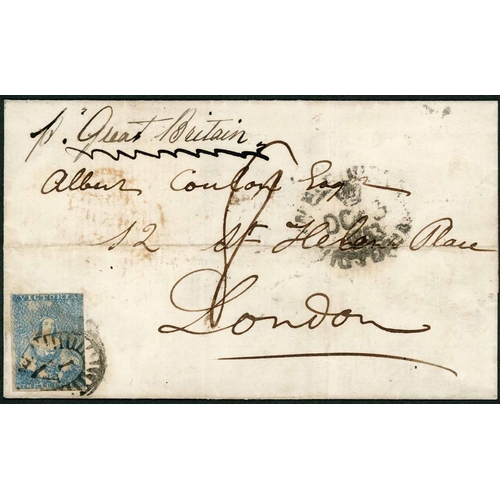 p. "Great Britain"
Albert Coulon Esqr
12 St Helens Place
London
VICTORIA
OC